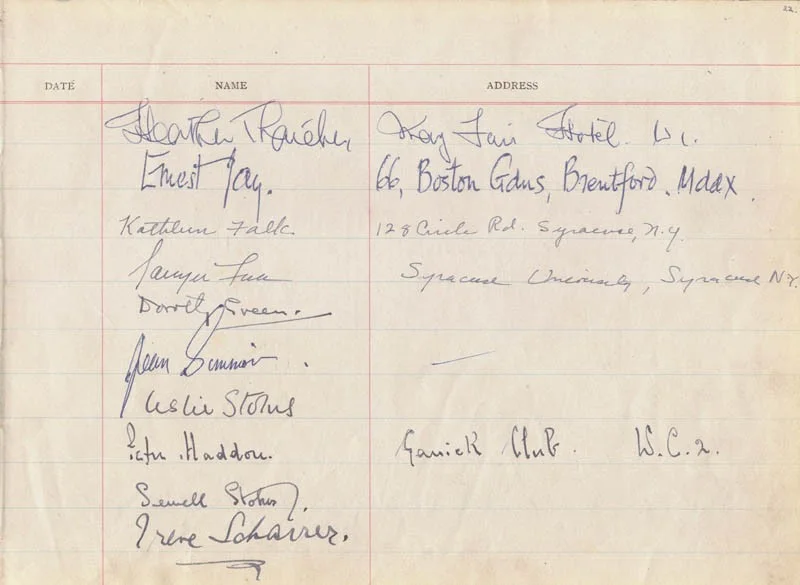 22.
DATE NAME ADDRESS
Heather Thatcher, May Fair Hotel. W1.
Ernest Jay. 66, Boston Gdns, Brentford. Mddx.
Kathleen Falk. 128 Circle Rd. Syracuse, N.Y.
Sawyer Falk Syracuse University, Syracuse N.Y.
Dorothy Green.
Jean Simmons. —
Leslie Stokes
Peter Haddon. Garrick Club. W.C.2.
Sewell Stokes.
Irene Scharrer.